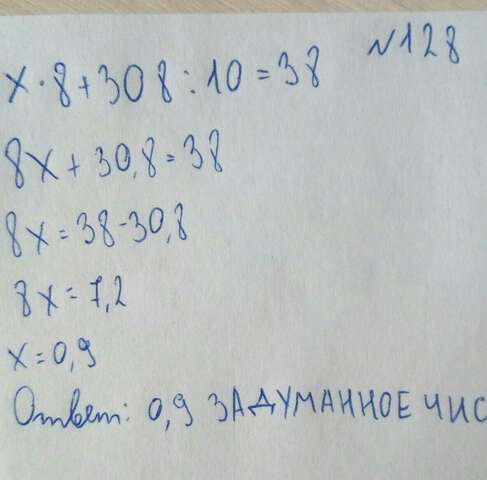 N128
x·8+308:10=38
8x+30,8=38
8x=38-30,8
8x=7,2
x=0,9
Ответ: 0,9 ЗАДУМАННОЕ ЧИС